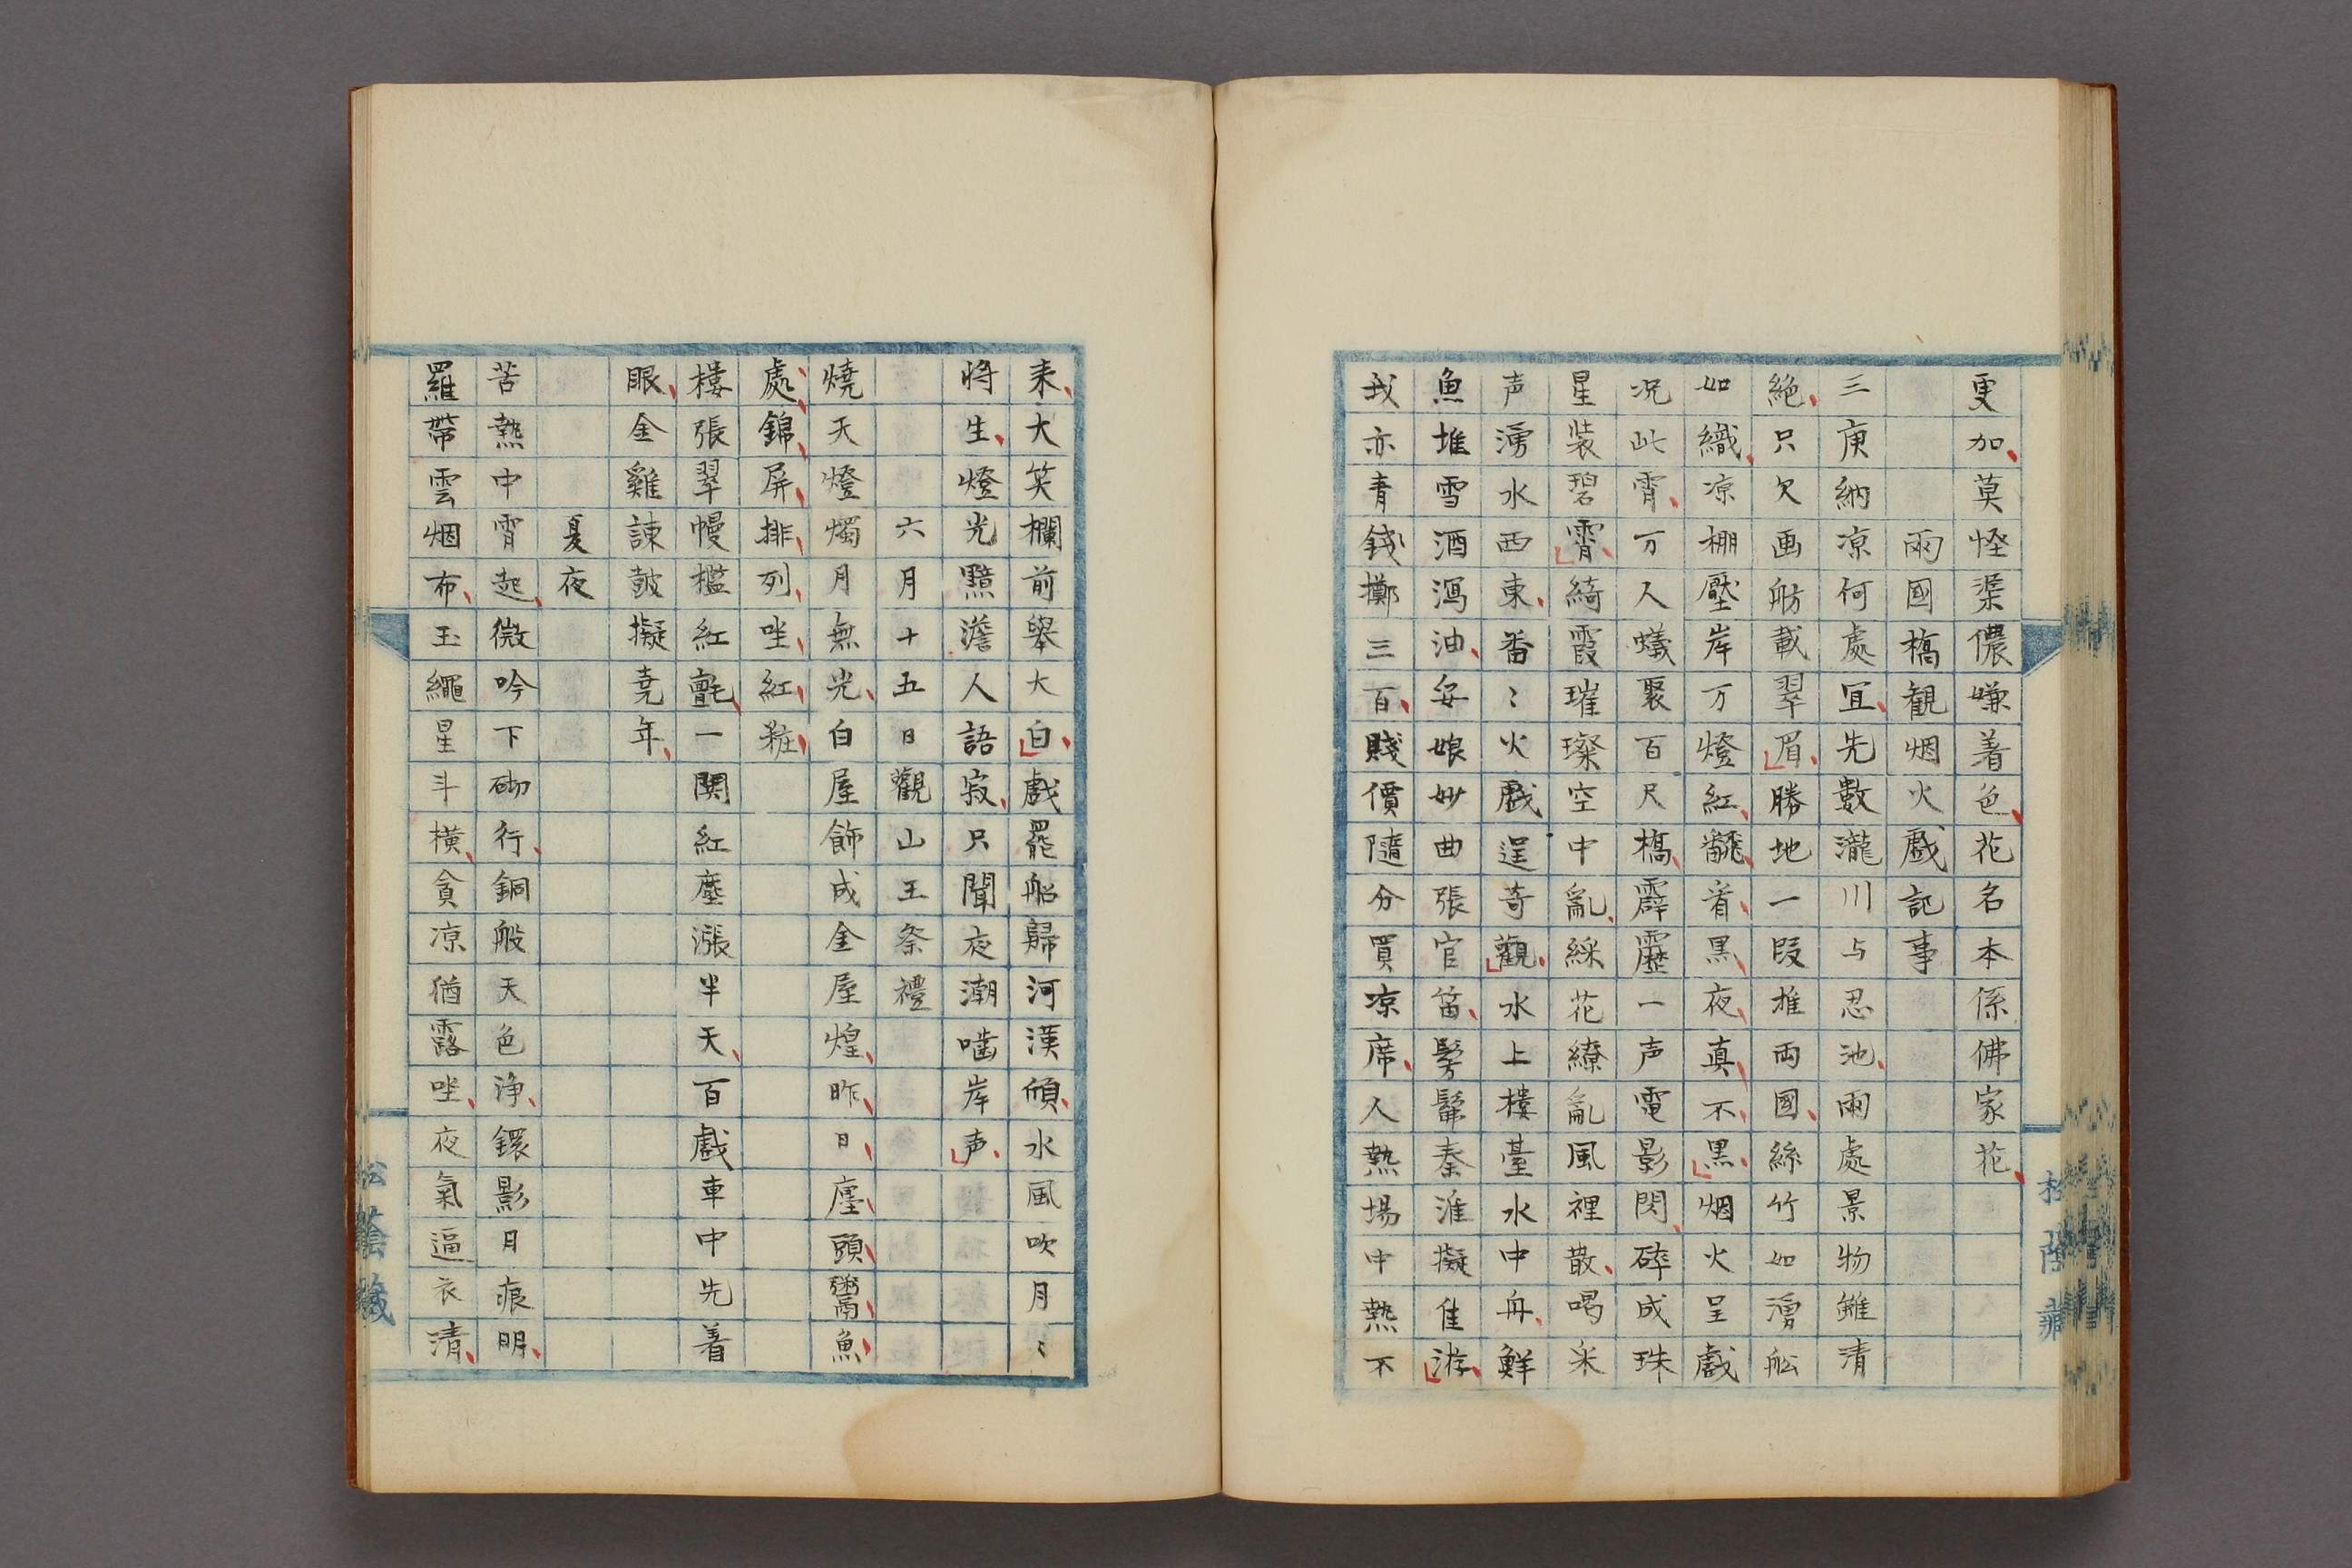 更加莫怪渠儂嫌着色花名本係佛家花
兩國橋観烟火戲記事
三庚納凉何處冝先數瀧川与忍池兩處景物雖清
絶只欠画舫載翠眉勝地一段推両國絲竹如湧舩
如織凉棚壓岸万燈紅飜看黒夜真不黒烟火呈戲
况此霄万人蟻聚百尺橋霹靂一声電影閃碎成珠
星装碧霄綺霞璀璨空中亂綵花繚亂風裡散喝采
声湧水西東番〻火戲逞奇觀水上樓臺水中舟鮮
魚堆雪酒瀉油安娘妙曲張官笛髣髴秦淮擬佳游
我亦青錢擲三百賤價隨分買凉席人熱場中熱不
来大笑欄前舉大白戲罷船歸河漢傾水風吹月〻
将生燈光黯澹人語寂只聞夜潮嚙岸声
六月十五日觀山王祭禮
燒天燈燭月無光白屋飾成金屋煌昨日廛頭鬻魚
處錦屏排列坐紅粧
樓張翠幔檻紅氈一鬨紅塵漲半天百戲車中先着
眼金雞諫皷擬堯年
夏夜
苦熱中宵起微吟下砌行銅般天色浄鐶影月痕明
羅帶雲烟布玉繩星斗横貪凉猶露坐夜氣逼衣清
松蔭藏